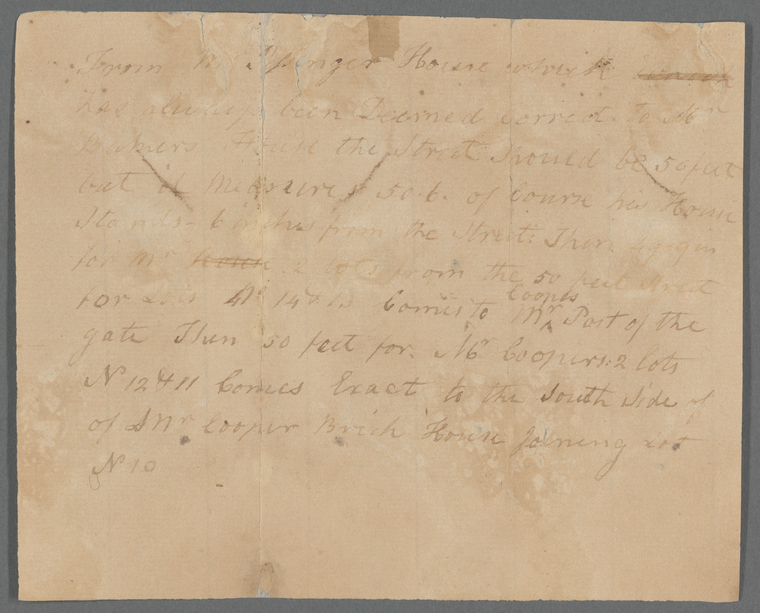 From Mr Spenger House which
has always been Deemed correct to Mr
Bakers House the Street Should be 50 feet
but it Measures 50.6. of Course his House
Stands 6 inches from the Street. Then again
for Mr house 2 lots from the 50 feet Street
for Lots No 14 & 13 Comes to Mr Coopers Post of the
gate Then 50 feet for. Mr Coopers. 2 lots
N 12 & 11 Comes Exact to the South Side of
of Mr Cooper Brick House Joining Lot
N 10